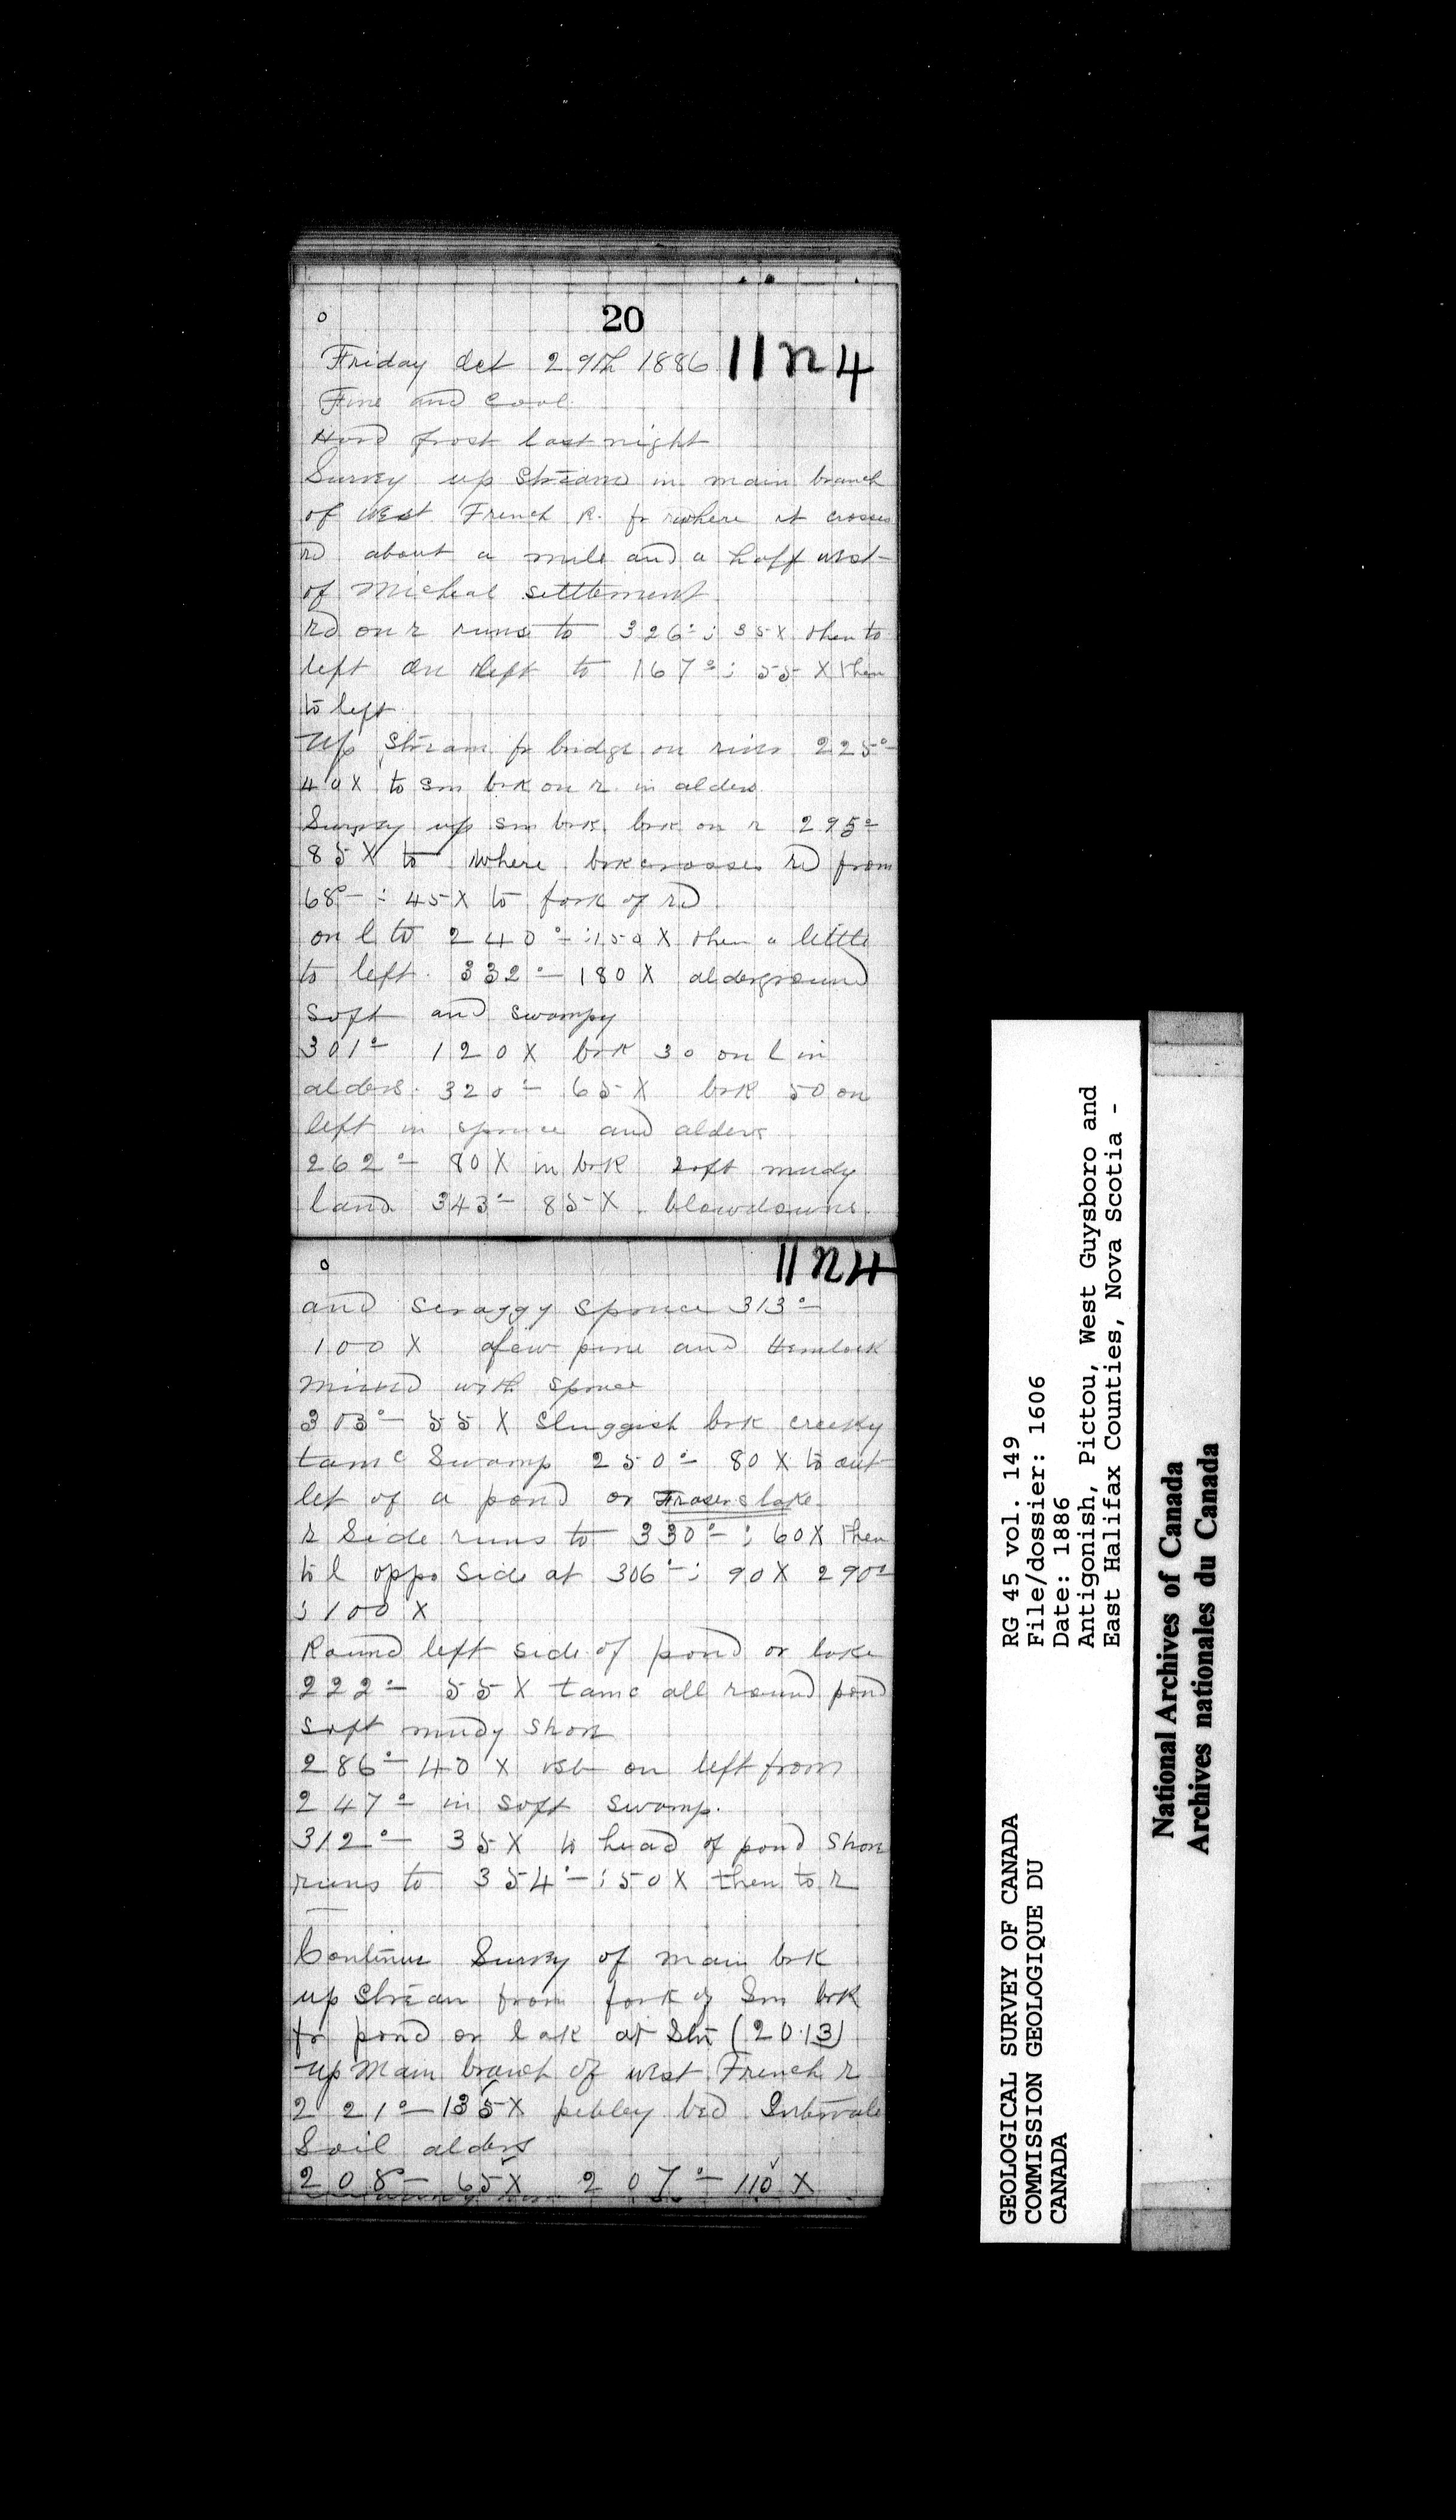 20
Friday Oct 29th 1886 11n4
Fine and cool
Hard frost last night
Survey up stream in main branch
of West French R. fr where it crosses
rd about a mile and a half west
of Micheal settlement
rd on r runs to 326°: 35X then to
left on left to 167°: 55X then
to left
Up stream fr bridge on river 225°
40X to sm brk on r. in alders
Survey up sm brk brk on r 295°
85X to where brk crosses rd from
68°: 45X to fork of rd
on l to 240°: 150X then a little
to left. 332° 180X alderground
soft and swampy
301° 120X brk 30 on l in
alders. 320° 65X brk 50 on
left in spruce and alders
262° 80X in brk soft mudy
land 343° 85X. blowdowns.
11n4
and scraggy spruce 313°
100X afew pine and Hemlock
mixed with spruce
303° 55X sluggish brk creeky
tamc Swamp 250° 80X to out
let of a pond or Frasers lake
r side runs to 330°: 60X then
to l oppo side at 306°: 90X 290°
: 100X
Round left side of pond or lake
222° 55X tamc all round pond
soft mudy shore
286° 40X on left from
247° in soft swamp.
312° 35X to head of pond shore
runs to 354°: 50X then to r
Continue Survey of main brk
up Stream from fork of Sm brk
fr pond or lak at Stn (20.13)
up Main branch of west French r
221° 135X pebley bed Intervale
Soil alders
208° 65X 207° 110X
RG 45 vol. 149
File/dossier: 1606
Date: 1886
Antigonish, Pictou, West Guysboro and
East Halifax Counties, Nova Scotia -
GEOLOGICAL SURVEY OF CANADA
COMMISSION GEOLOGIQUE DU
CANADA
National Archives of Canada
Archives nationales du Canada